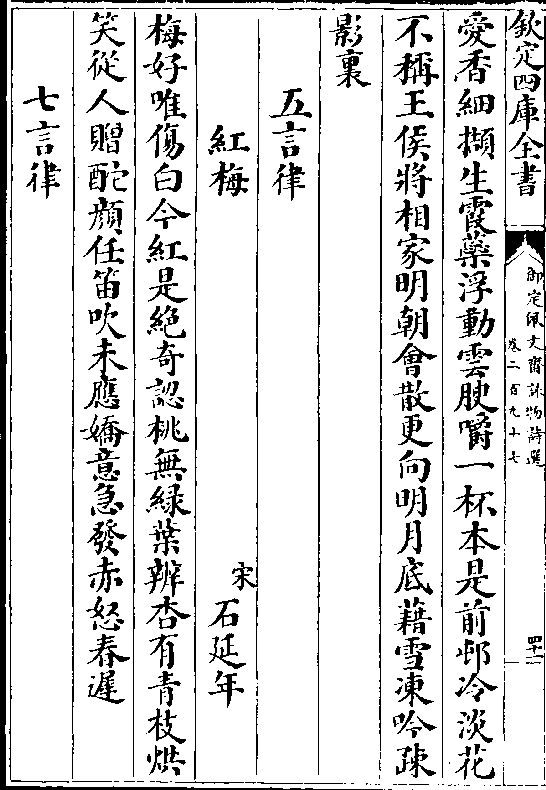 欽定四庫全書
御定佩文齋詠物詩選
卷二百九十七
四十一
愛香細擷生霞藥浮動雲腴嚼一杯本是前邨冷淡花
不稱王侯將相家明朝會散更向明月底藉雪凍吟疎
影裏
五言律
紅梅
宋
石延年
梅好唯傷白今紅是絶奇認桃無緑葉辨杏有青枝烘
笑從人贈酡顔任笛吹未應嬌意急發赤怒春遲
七言律